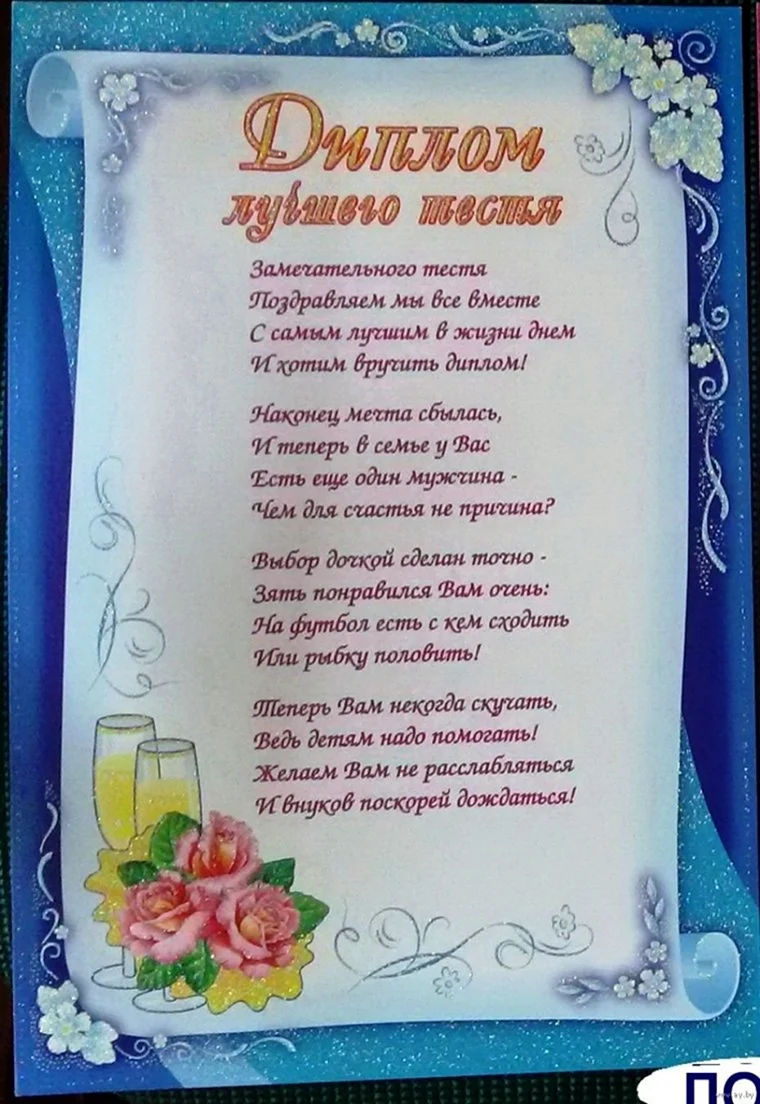 Диплом
лучшего тестя
Замечательного тестя
Поздравляем мы все вместе
С самым лучшим в жизни днем
И хотим вручить диплом!
Наконец мечта сбылась,
И теперь в семье у Вас
Есть еще один мужчина -
Чем для счастья не причина?
Выбор дочкой сделан точно -
Зять понравился Вам очень:
На футбол есть с кем сходить
Или рыбку половить!
Теперь Вам некогда скучать,
Ведь детям надо помогать!
Желаем Вам не расслабляться
И внуков поскорей дождаться!
ПО